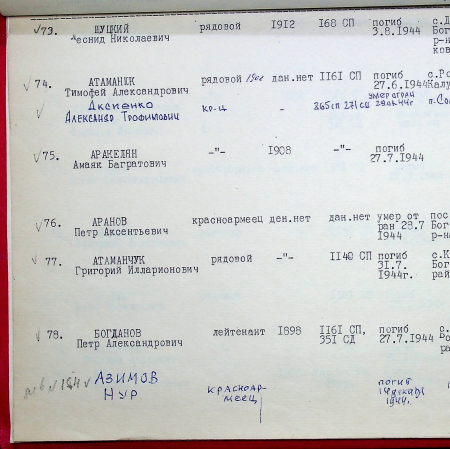 73. ШУЦКИЙ рядовой 1912 168 СП погиб с.Д
Леонид Николаевич 3.8.1944 Бог
р-н
ков
74. АТАМАНЮК рядовой дан.нет 1161 СП погиб с.Ро
Тимофей Александрович 27.6.1944 Калу
Аксененко кр-ц - 865сп 271сд умер от ран п.Со
Александр Трофимович 29.07.44г
75. АРАКЕЛЯН -"- 1908 -"- погиб
Амаяк Багратович 27.7.1944
76. АРАНОВ красноармеец ден.нет дан.нет умер от пос
Петр Аксентьевич ран 28.7 Бог
1944 р-н
77. АТАМАНЧУК рядовой -"- 1140 СП погиб с.К
Григорий Илларионович 31.7. Бог
1944г. рай
78. БОГДАНОВ лейтенант 1898 1161 СП, погиб с.
Петр Александрович 351 СД 27.7.1944 Бо
ра
АЗИМОВ КРАСНОАР- погиб
НУР МЕЕЦ 14 декабр
1944г.